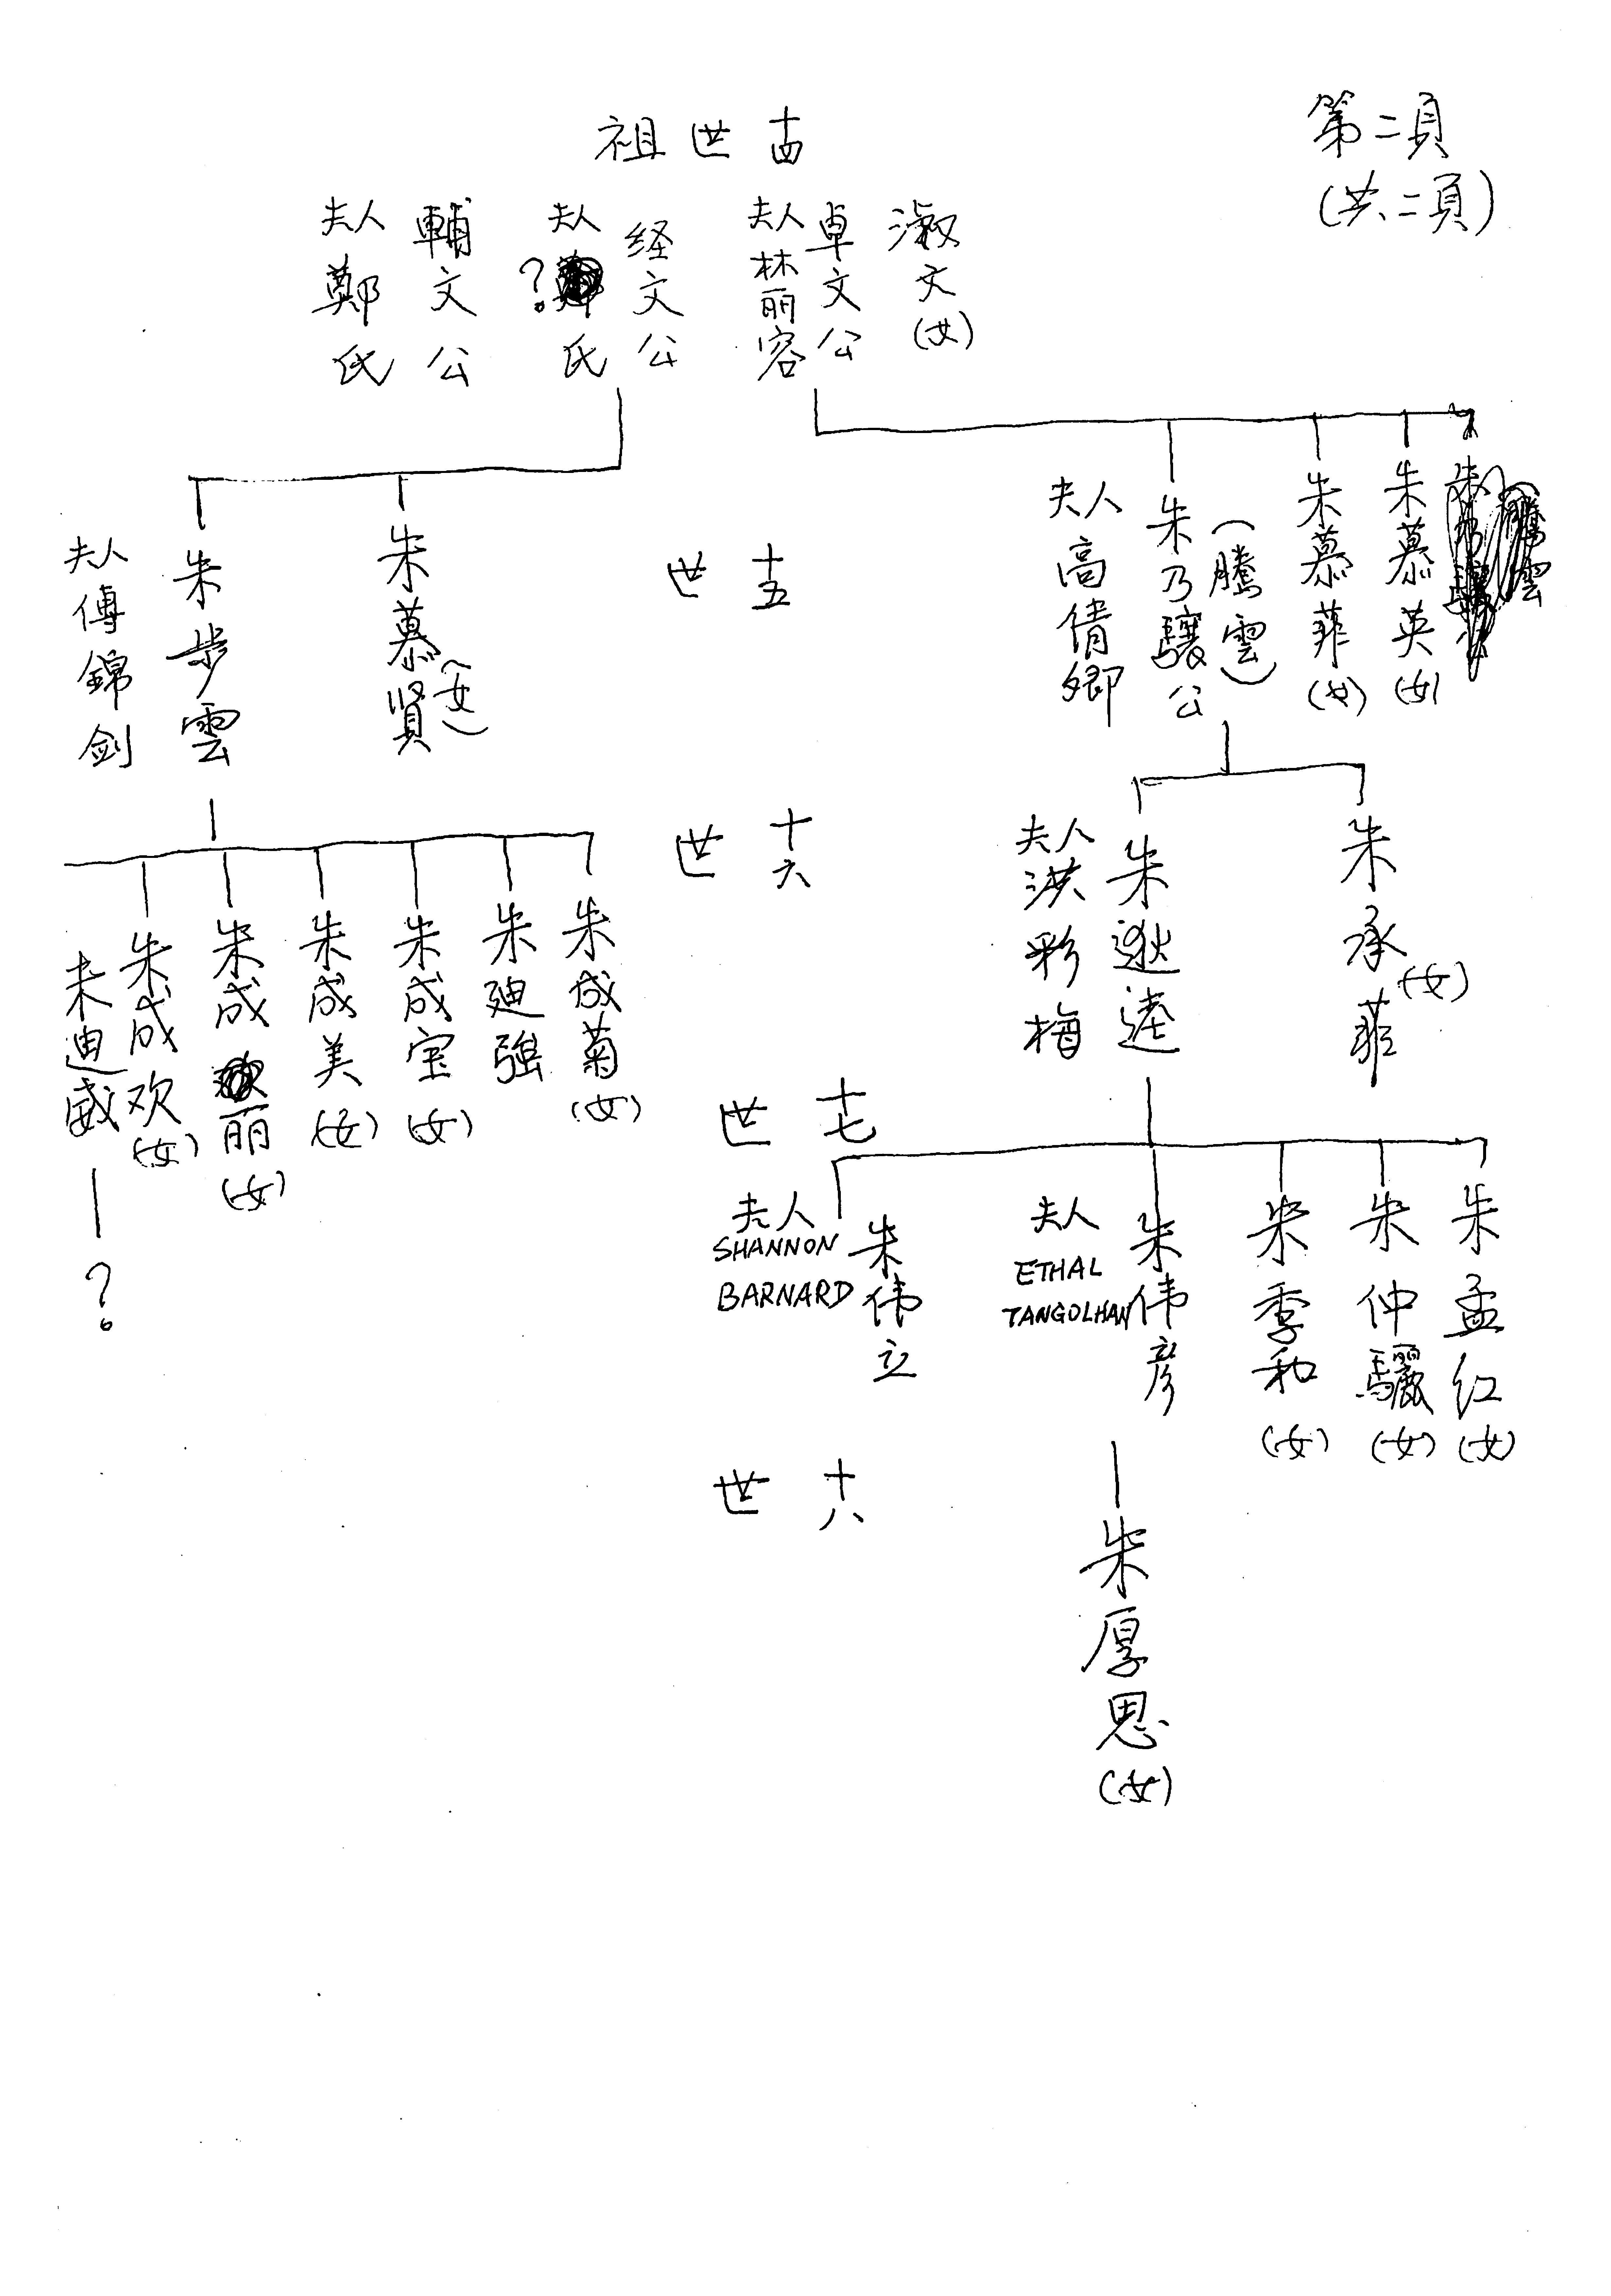 第二頁
(共二頁)
十四世祖
淑文(女)
卓文公
夫人林丽容
经文公
夫人?氏
輔文公
夫人鄭氏
十五世
朱慕英(女)
朱慕菲(女)
朱乃驤公(騰雲)
夫人高倩卿
朱慕贤(女)
朱步雲
夫人傅錦剑
十六世
朱承菲(女)
朱逖逵
夫人洪彩梅
朱成菊(女)
朱廸強
朱成宝(女)
朱成美(女)
朱成丽(女)
朱成欢(女)
朱迪威
?
十七世
朱孟红(女)
朱仲驪(女)
朱季和(女)
朱伟彦
夫人
ETHAL
TANGOLHAN
朱伟立
夫人
SHANNON
BARNARD
十八世
朱厚恩(女)